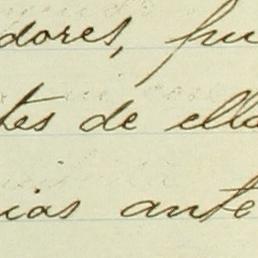 dores, fu
tes de ella
cias ante